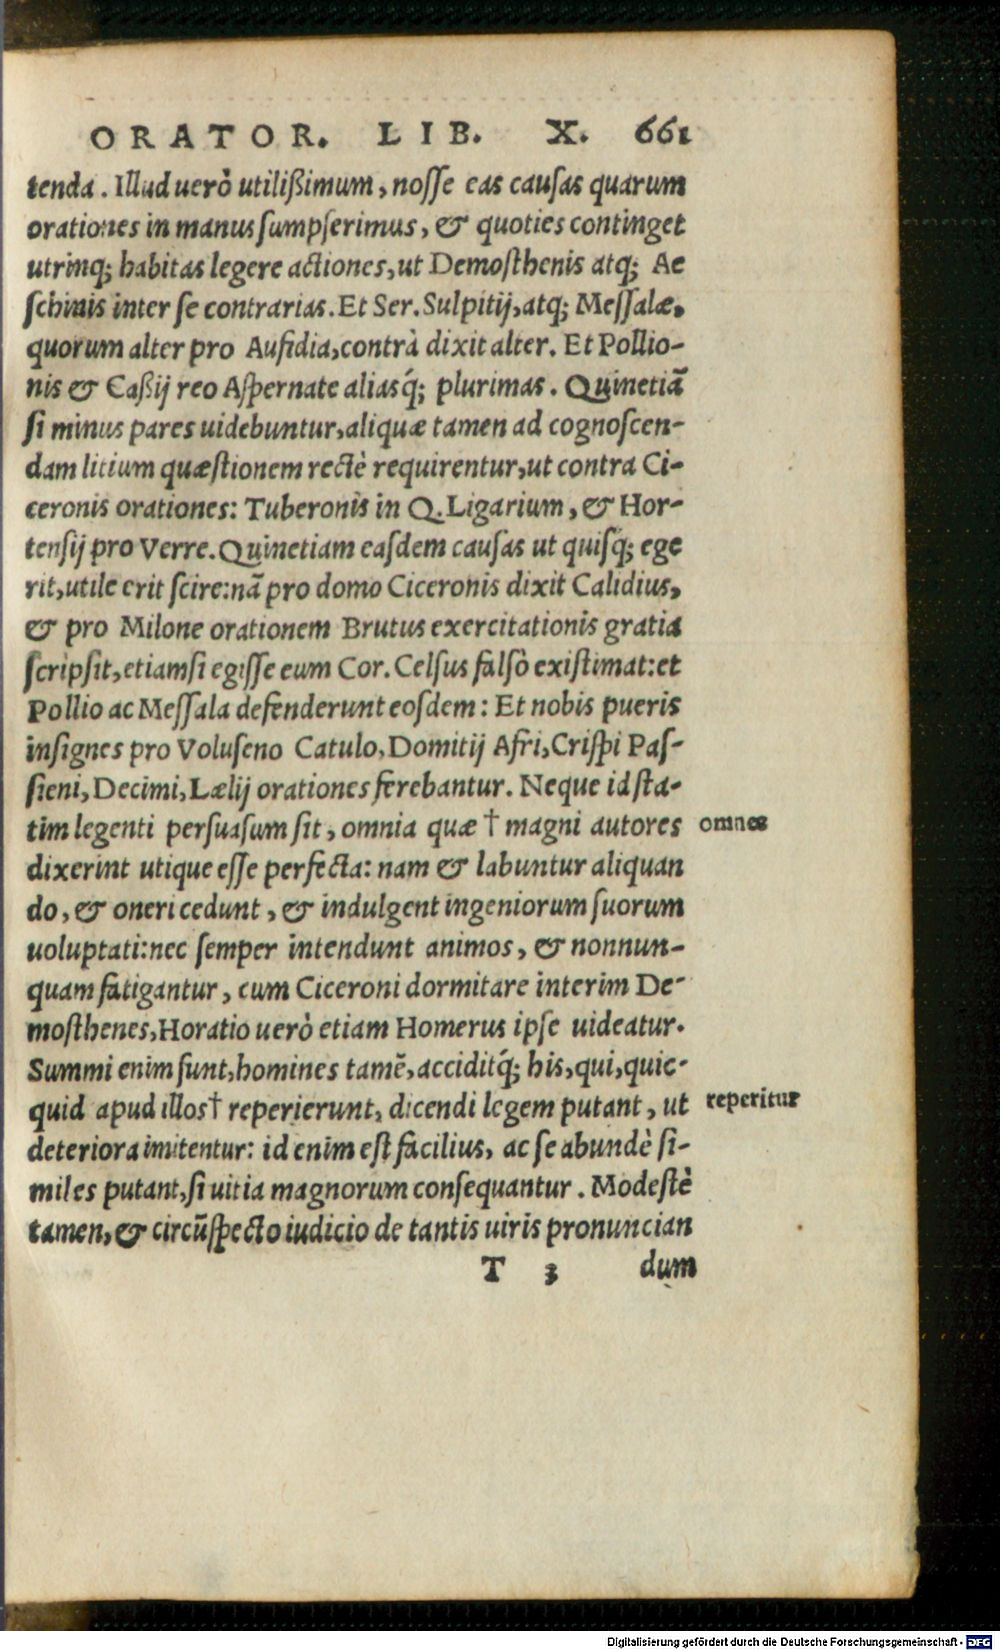 ORATOR. LIB. X. 661
tenda. Illud uerò utilißimum, nosse eas causas quarum
orationes in manus sumpserimus, & quoties continget
utrinq; habitas legere actiones, ut Demosthenis atq; Ae
schinis inter se contrarias. Et Ser. Sulpitij, atq; Messalæ,
quorum alter pro Aufidia, contrà dixit alter. Et Pollio-
nis & Caßij reo Aspernate aliasq́; plurimas. Quinetiã
si minus pares uidebuntur, aliquæ tamen ad cognoscen-
dam litium quæstionem rectè requirentur, ut contra Ci-
ceronis orationes: Tuberonis in Q. Ligarium, & Hor-
tensij pro Verre. Quinetiam easdem causas ut quisq́; ege
rit, utile erit scire: nã pro domo Ciceronis dixit Calidius,
& pro Milone orationem Brutus exercitationis gratia
scripsit, etiamsi egisse eum Cor. Celsus falsò existimat: et
Pollio ac Messala defenderunt eosdem: Et nobis pueris
insignes pro Voluseno Catulo, Domitij Afri, Crispi Pas-
sieni, Decimi, Lælij orationes ferebantur. Neque id sta-
tim legenti persuasum sit, omnia quæ † magni autores omnes
dixerint utique esse perfecta: nam & labuntur aliquan
do, & oneri cedunt, & indulgent ingeniorum suorum
uoluptati: nec semper intendunt animos, & nonnun-
quam fatigantur, cum Ciceroni dormitare interim De-
mosthenes, Horatio uerò etiam Homerus ipse uideatur.
Summi enim sunt, homines tamẽ, acciditq́; his, qui, quic-
quid apud illos† reperierunt, dicendi legem putant, ut reperitur
deteriora imitentur: id enim est facilius, ac se abundè si-
miles putant, si uitia magnorum consequantur. Modestè
tamen, & circũspecto iudicio de tantis uiris pronuncian
T 3 dum
Digitalisierung gefördert durch die Deutsche Forschungsgemeinschaft - DFG